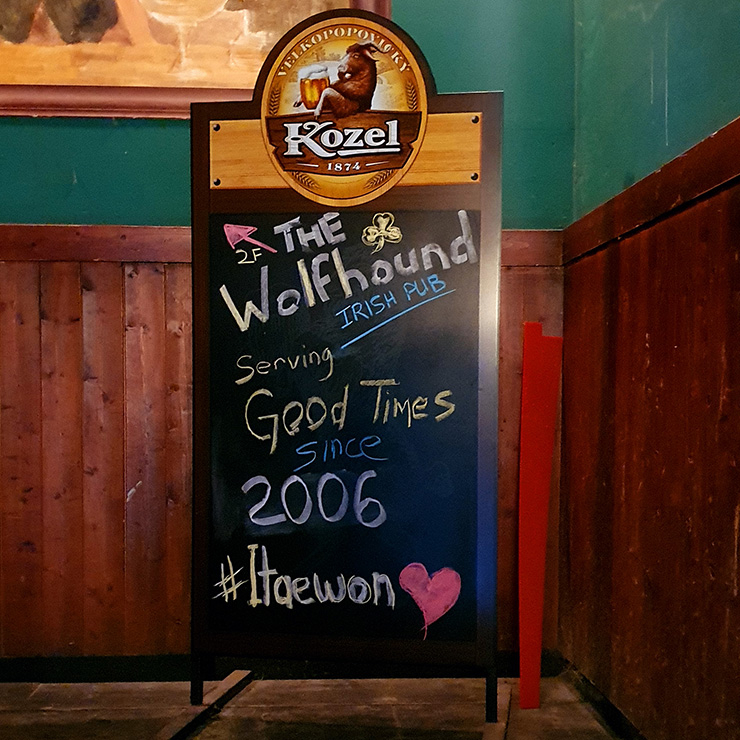 VELKOPOPOVICKÝ
Kozel
1874
THE
2F
Wolfhound
IRISH PUB
Serving
Good Times
since
2006
#Itaewon